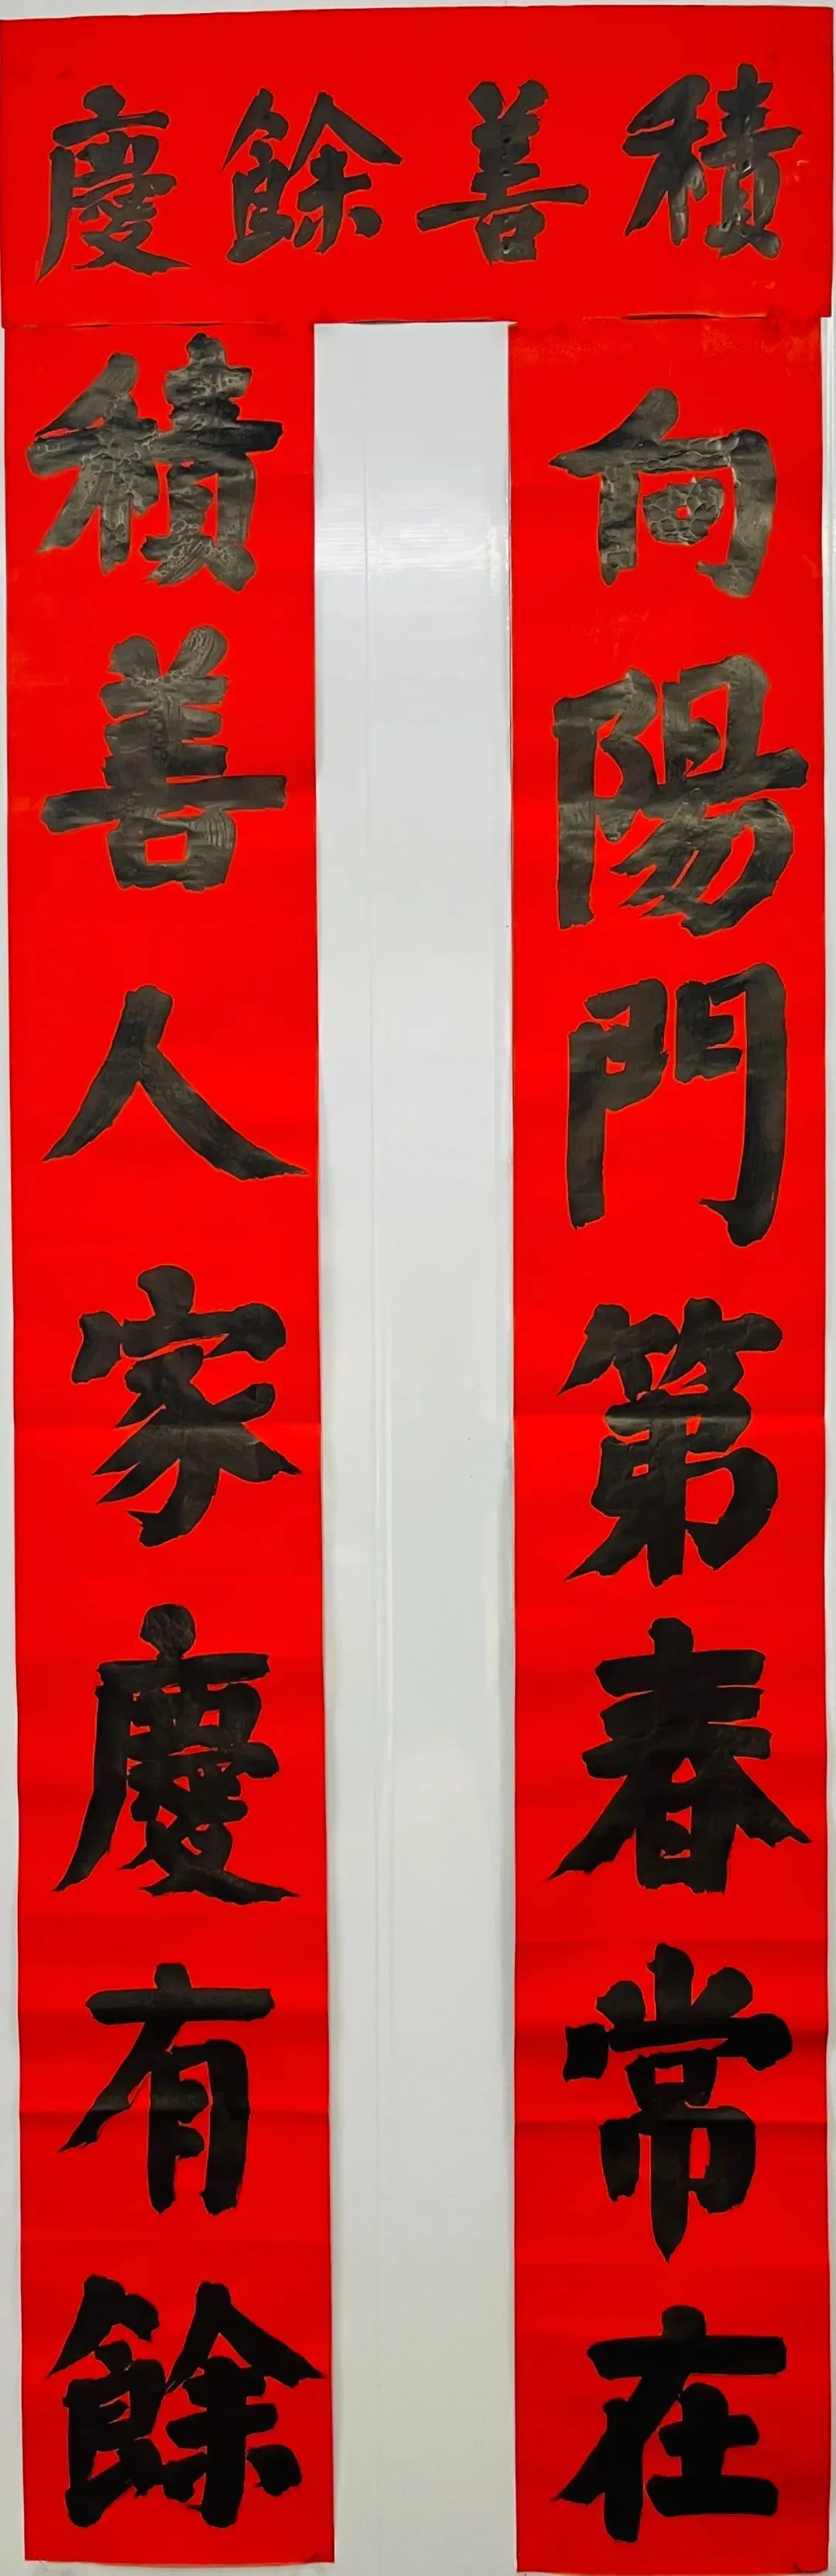 積善餘慶
向陽門第春常在
積善人家慶有餘